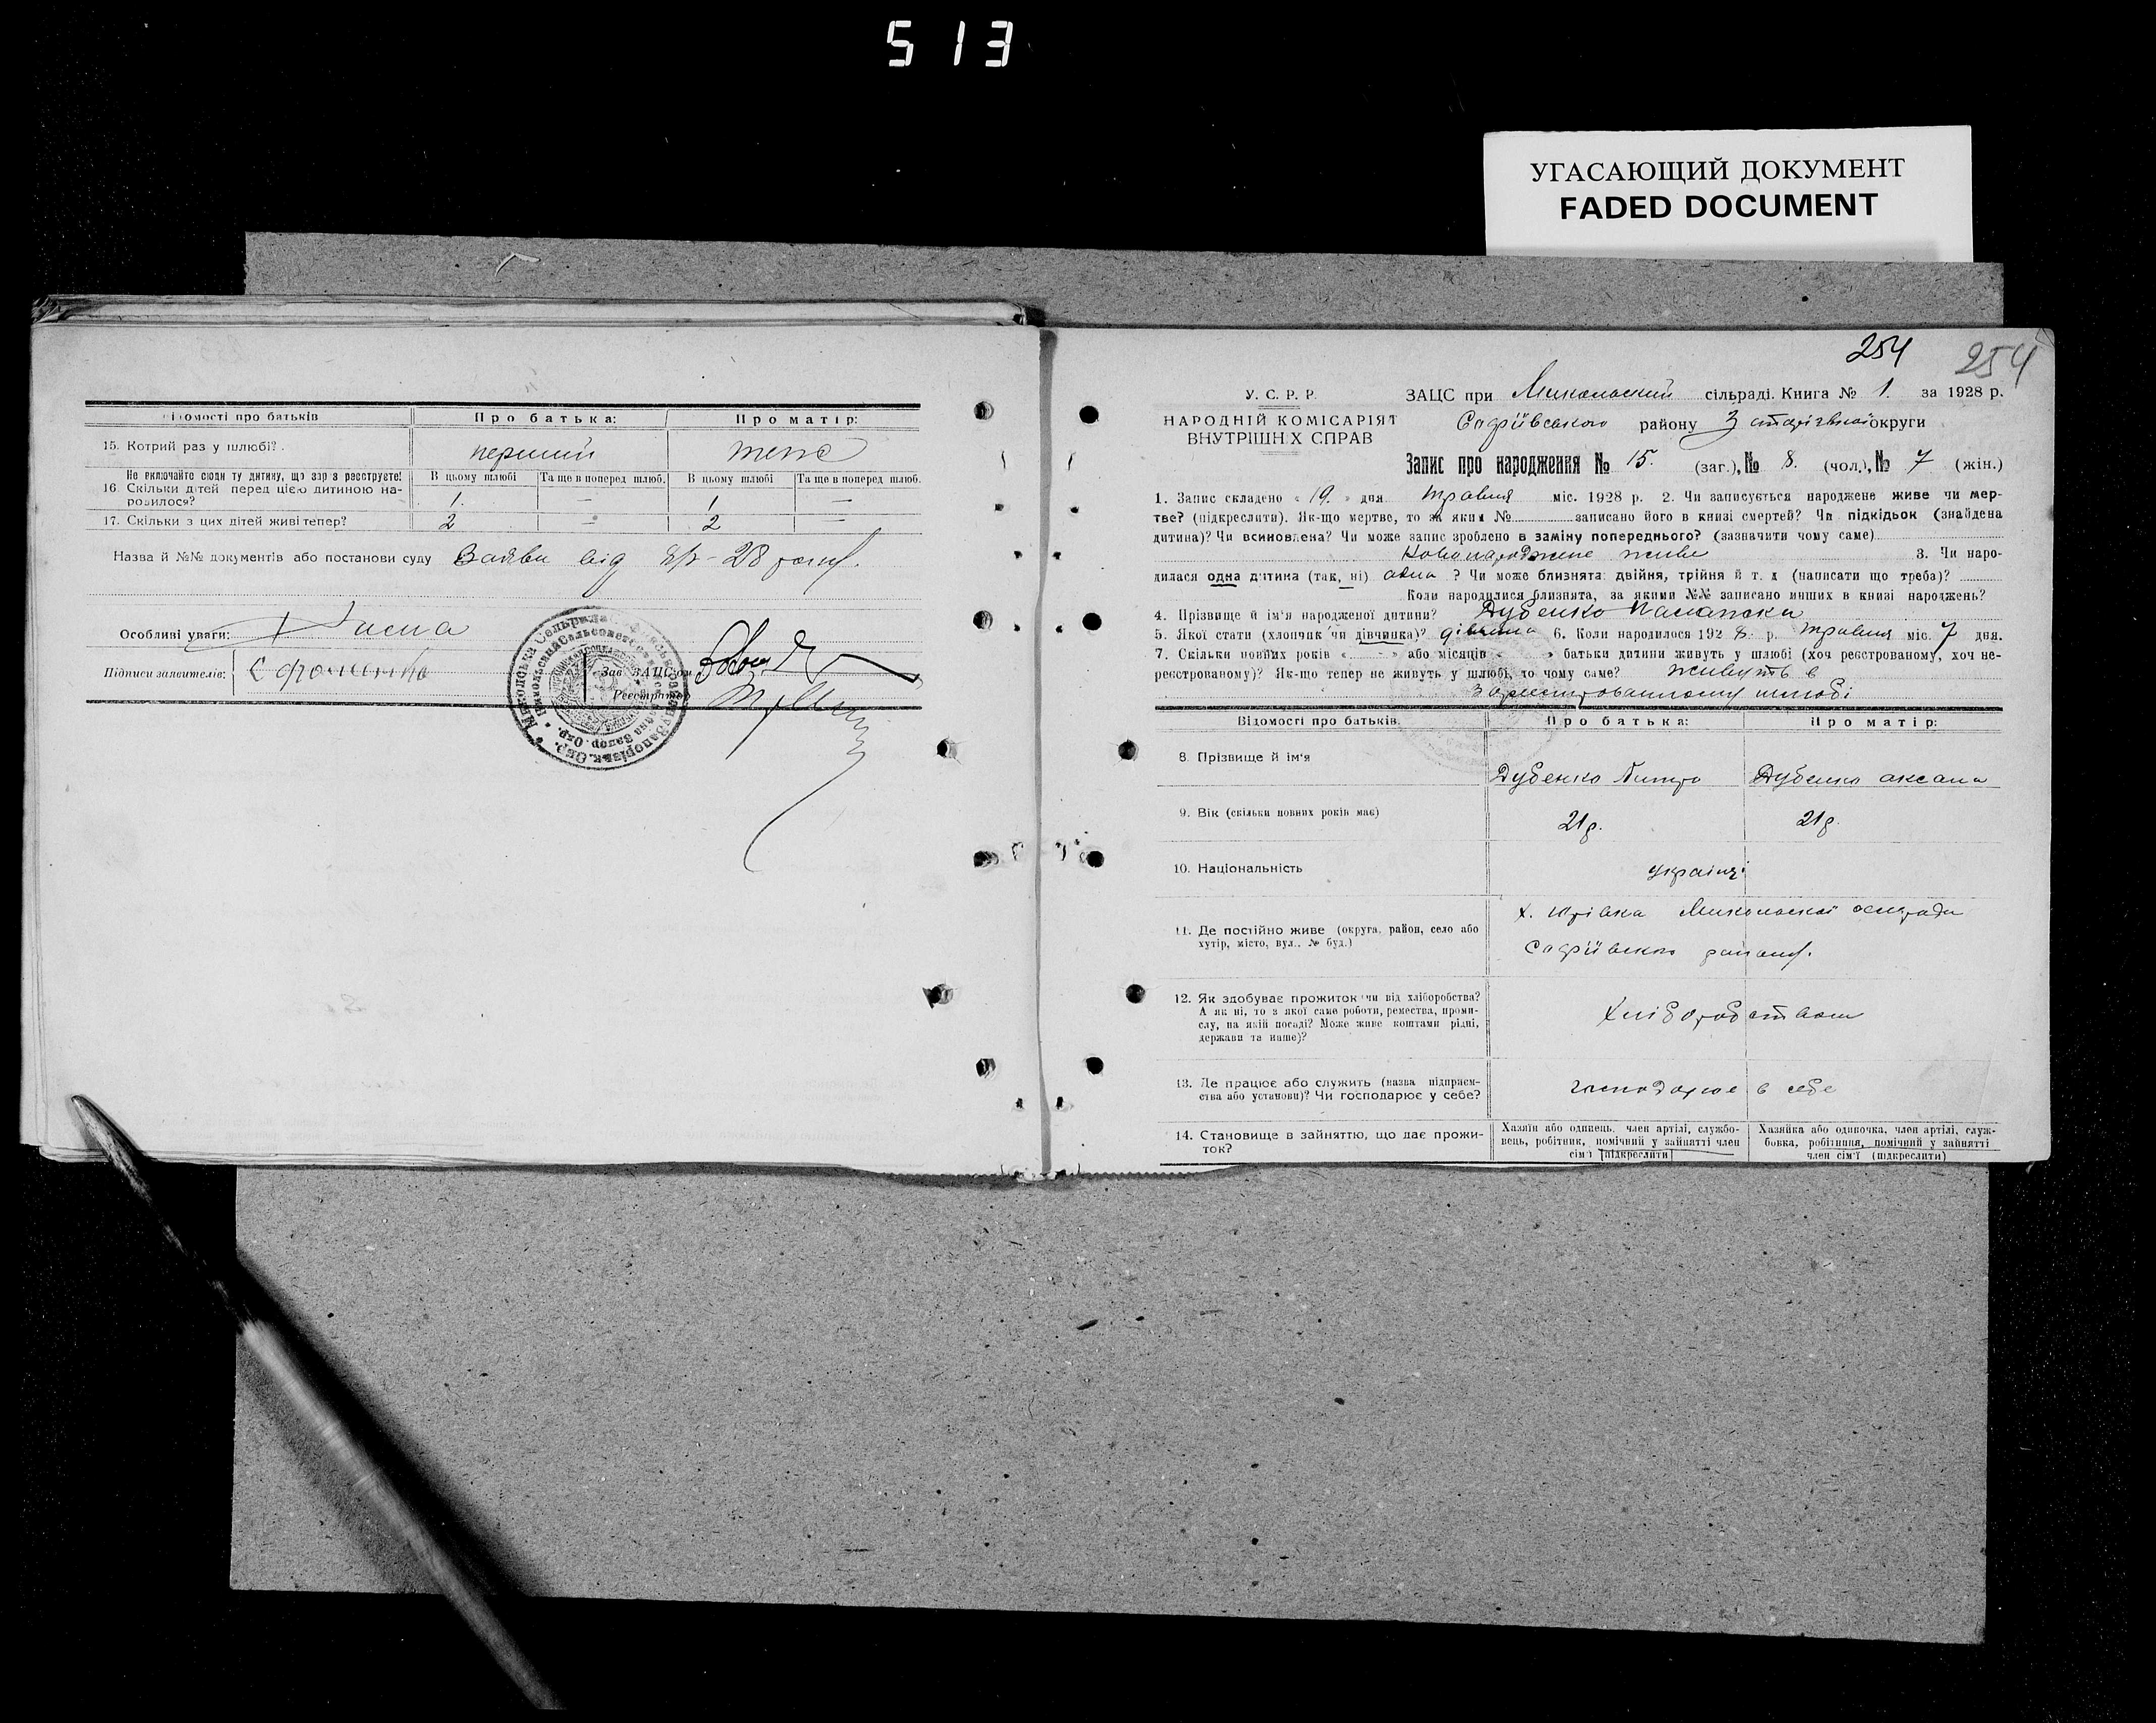 513
УГАСАЮЩИЙ ДОКУМЕНТ
FADED DOCUMENT
Відомості про батьків
Про батька:
Про матір:
15. Котрий раз у шлюбі?
перший
теж
Не включайте сюди ту дитину, що зараз реєструєте!
16. Скільки дітей перед цією дитиною народилося?
В цьому шлюбі
Та ще в поперед. шлюб.
В цьому шлюбі
Та ще в поперед. шлюб.
1. — 1 —
17. Скільки з цих дітей живі тепер?
2 — 2 —
Назва й №№ документів або постанови суду Заява від
Особливі уваги:
Підписи заявителів:
Зав. ЗАЦС'ом
Реєстратор
254 254
У. С. Р. Р.
НАРОДНІЙ КОМІСАРІЯТ
ВНУТРІШНІХ СПРАВ
ЗАЦС при Микольский сільраді. Книга № 1. за 1928 р.
Софіївського району Запорізької округи
Запис про народження № 15. (заг.), № 8. (чол.), № 7 (жін.)
1. Запис складено « 19. » дня травня міс. 1928 р. 2. Чи записується народжене живе чи мер-
тве? (підкреслити). Як-що мертве, то за яким № записано його в книзі смертей? Чи підкідьок (знайдена
дитина)? Чи всиновлена? Чи може запис зроблено в заміну попереднього? (зазначити чому саме)
новонароджене живе 3. Чи наро-
дилася одна дитина (так, ні) одна ? Чи може близнята: двійня, трійня й т. д (написати що треба)?
Коли народилися близнята, за якими №№ записано инших в книзі народжень?
4. Прізвище й ім'я народженої дитини? Дубенко
5. Якої стати (хлопчик чи дівчинка)? дівчина 6. Коли народилося 192 8 р. травня міс. 7 дня.
7. Скільки повних років « - » або місяців « » батьки дитини живуть у шлюбі (хоч реєстрованому, хоч не-
реєстрованому)? Як-що тепер не живуть у шлюбі, то чому саме? живуть в
зареєстрованному шлюбі
Відомості про батьків.
Про батька:
Про матір:
8. Прізвище й ім'я
Дубенко
Дубенко аксана
9. Вік (скільки повних років має)
21 р.
21 р.
10. Національність
українці
11. Де постійно живе (округа, район, село або
хутір, місто, вул., № буд.)
х. Юрівка Микольскої
Софіївсько району.
12. Як здобуває прожиток чи від хліборобства?
А як ні, то з якої саме роботи, ремества, проми-
слу, на якій посаді? Може живе коштами рідні,
держави та инше)?
Хліборобством
13. Де працює або служить (назва підприєм-
ства або установи)? Чи господарює у себе?
господарює в себе
14. Становище в зайняттю, що дає прожи-
ток?
Хазяїн або одинець, член артілі, службо-
вець, робітник, помічний у зайнятті член
сім'ї (підкреслити)
Хазяйка або одиночка, член артілі, служ-
бовка, робітниця, помічний у зайнятті
член сім'ї (підкреслити)